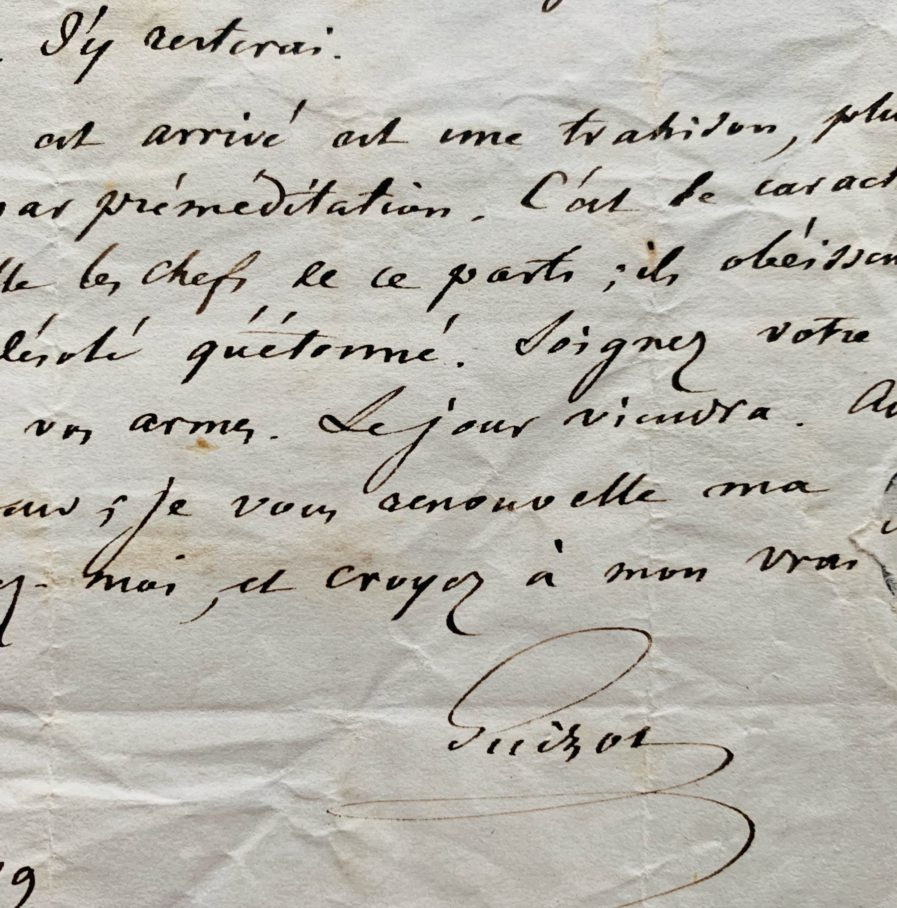 . J'y resterai.
est arrivé est une trahison, plu
par préméditation. C'est le caract
lle les chefs de ce parti ; ils obéissen
désolé qu'étonné. Soignez votre
vos armes. Le jour viendra. Ad
; je vous renouvelle ma
z-moi, et croyez à mon vrai
Guizot
9